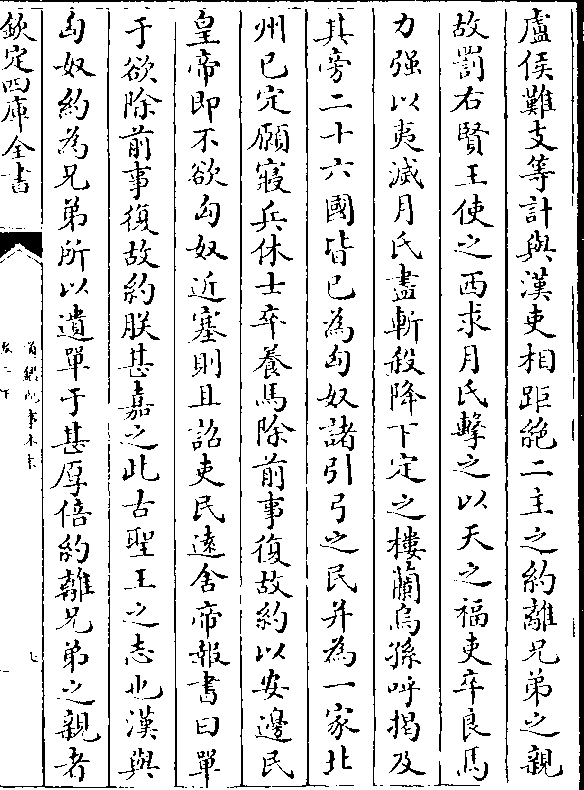 盧侯難支等計與漢吏相距絶二主之約離兄弟之親
故罰右賢王使之西求月氏擊之以天之福吏卒良馬
力强以夷滅月氏盡斬殺降下定之樓蘭烏孫呼揭及
其旁二十六國皆已為匈奴諸引弓之民并為一家北
州已定願寢兵休士卒養馬除前事復故約以安邊民
皇帝即不欲匈奴近塞則且詔吏民逺舍帝報書曰單
于欲除前事復故約朕甚嘉之此古聖王之志也漢與
匈奴約為兄弟所以遺單于甚厚倍約離兄弟之親者
欽定四庫全書
七